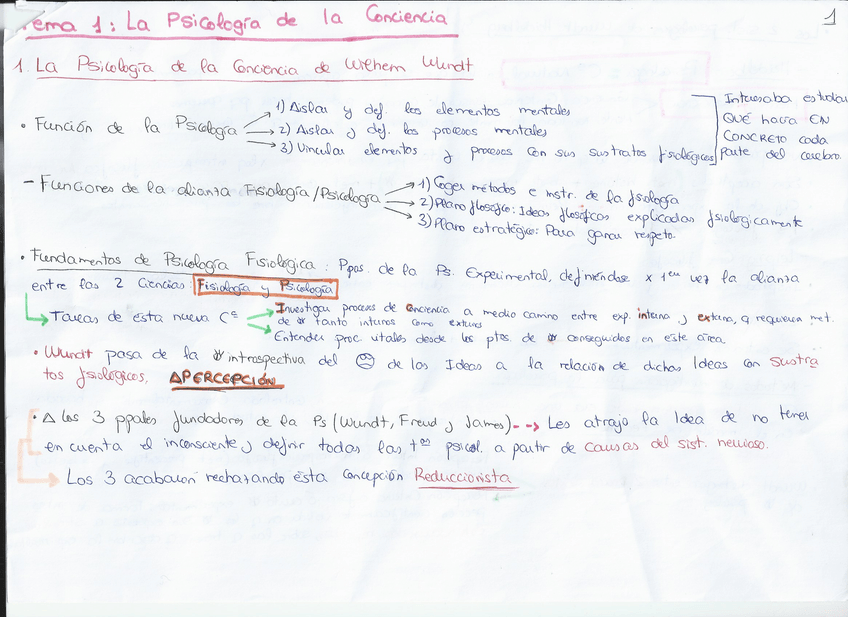 Tema 1: La Psicología de la Conciencia
1
1. La Psicología de la Conciencia de Wilhem Wundt
• Función de la Psicología
1) Aislar y def. los elementos mentales
2) Aislar y def. los procesos mentales
3) Vincular elementos y procesos con sus sustratos fisiológicos
Interesaba estudiar
QUÉ hacía EN
CONCRETO cada
parte del cerebro.
- Funciones de la alianza Fisiología/Psicología
1) Coger métodos e instr. de la fisiología
2) Plano filosófico: Ideas filosóficas explicadas fisiologicamente
3) Plano estratégico: Para ganar respeto.
• Fundamentos de Psicología Fisiológica: Ppos. de la Ps. Experimental, definiéndose x 1era vez la alianza
entre las 2 Ciencias: Fisiología y Psicología
Tareas de esta nueva Cª
Investigar procesos de conciencia a medio camino entre exp. interna y externa, q requieren met.
de tanto internos como externos
Entender proc. vitales desde los ptos. de conseguidos en este área.
• Wundt pasa de la introspectiva del de las Ideas a la relación de dichas Ideas con sustra
tos fisiológicos, APERCEPCIÓN
• A los 3 ppales fundadores de la Ps (Wundt, Freud y James) --> Les atrajo la Idea de no tener
en cuenta el inconsciente y definir todas las psicol. a partir de causas del sist. nervioso.
Los 3 acabaron rechazando esta concepción Reduccionista